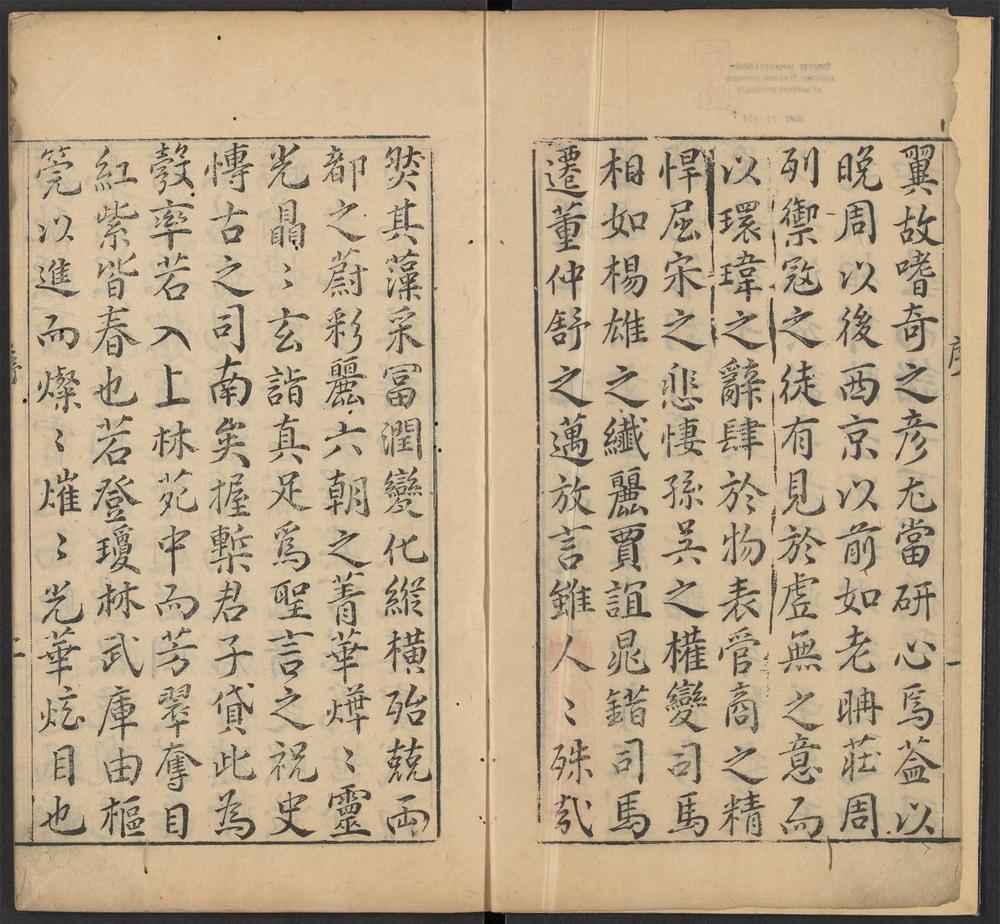 翼故嗜奇之彦尤當研心焉葢以
晚周以後西京以前如老聃莊周
列禦寇之徒有見於虛無之意而
以環瑋之辭肆於物表管商之精
悍屈宋之悲悽孫吳之權變司馬
相如楊雄之纖麗賈誼晁錯司馬
遷董仲舒之邁放言雖人〻殊哉
序
一
然其藻采冨潤變化縱橫殆兢両
都之蔚彩麗六朝之菁華燁〻靈
光晶〻玄詣真足爲聖言之祝史
慱古之司南矣握槧君子貸此為
彀率若入上林苑中而芳翠奪目
紅紫皆春也若登瓊林武庫由樞
筦以進而燦〻熣〻光華炫目也
序
二